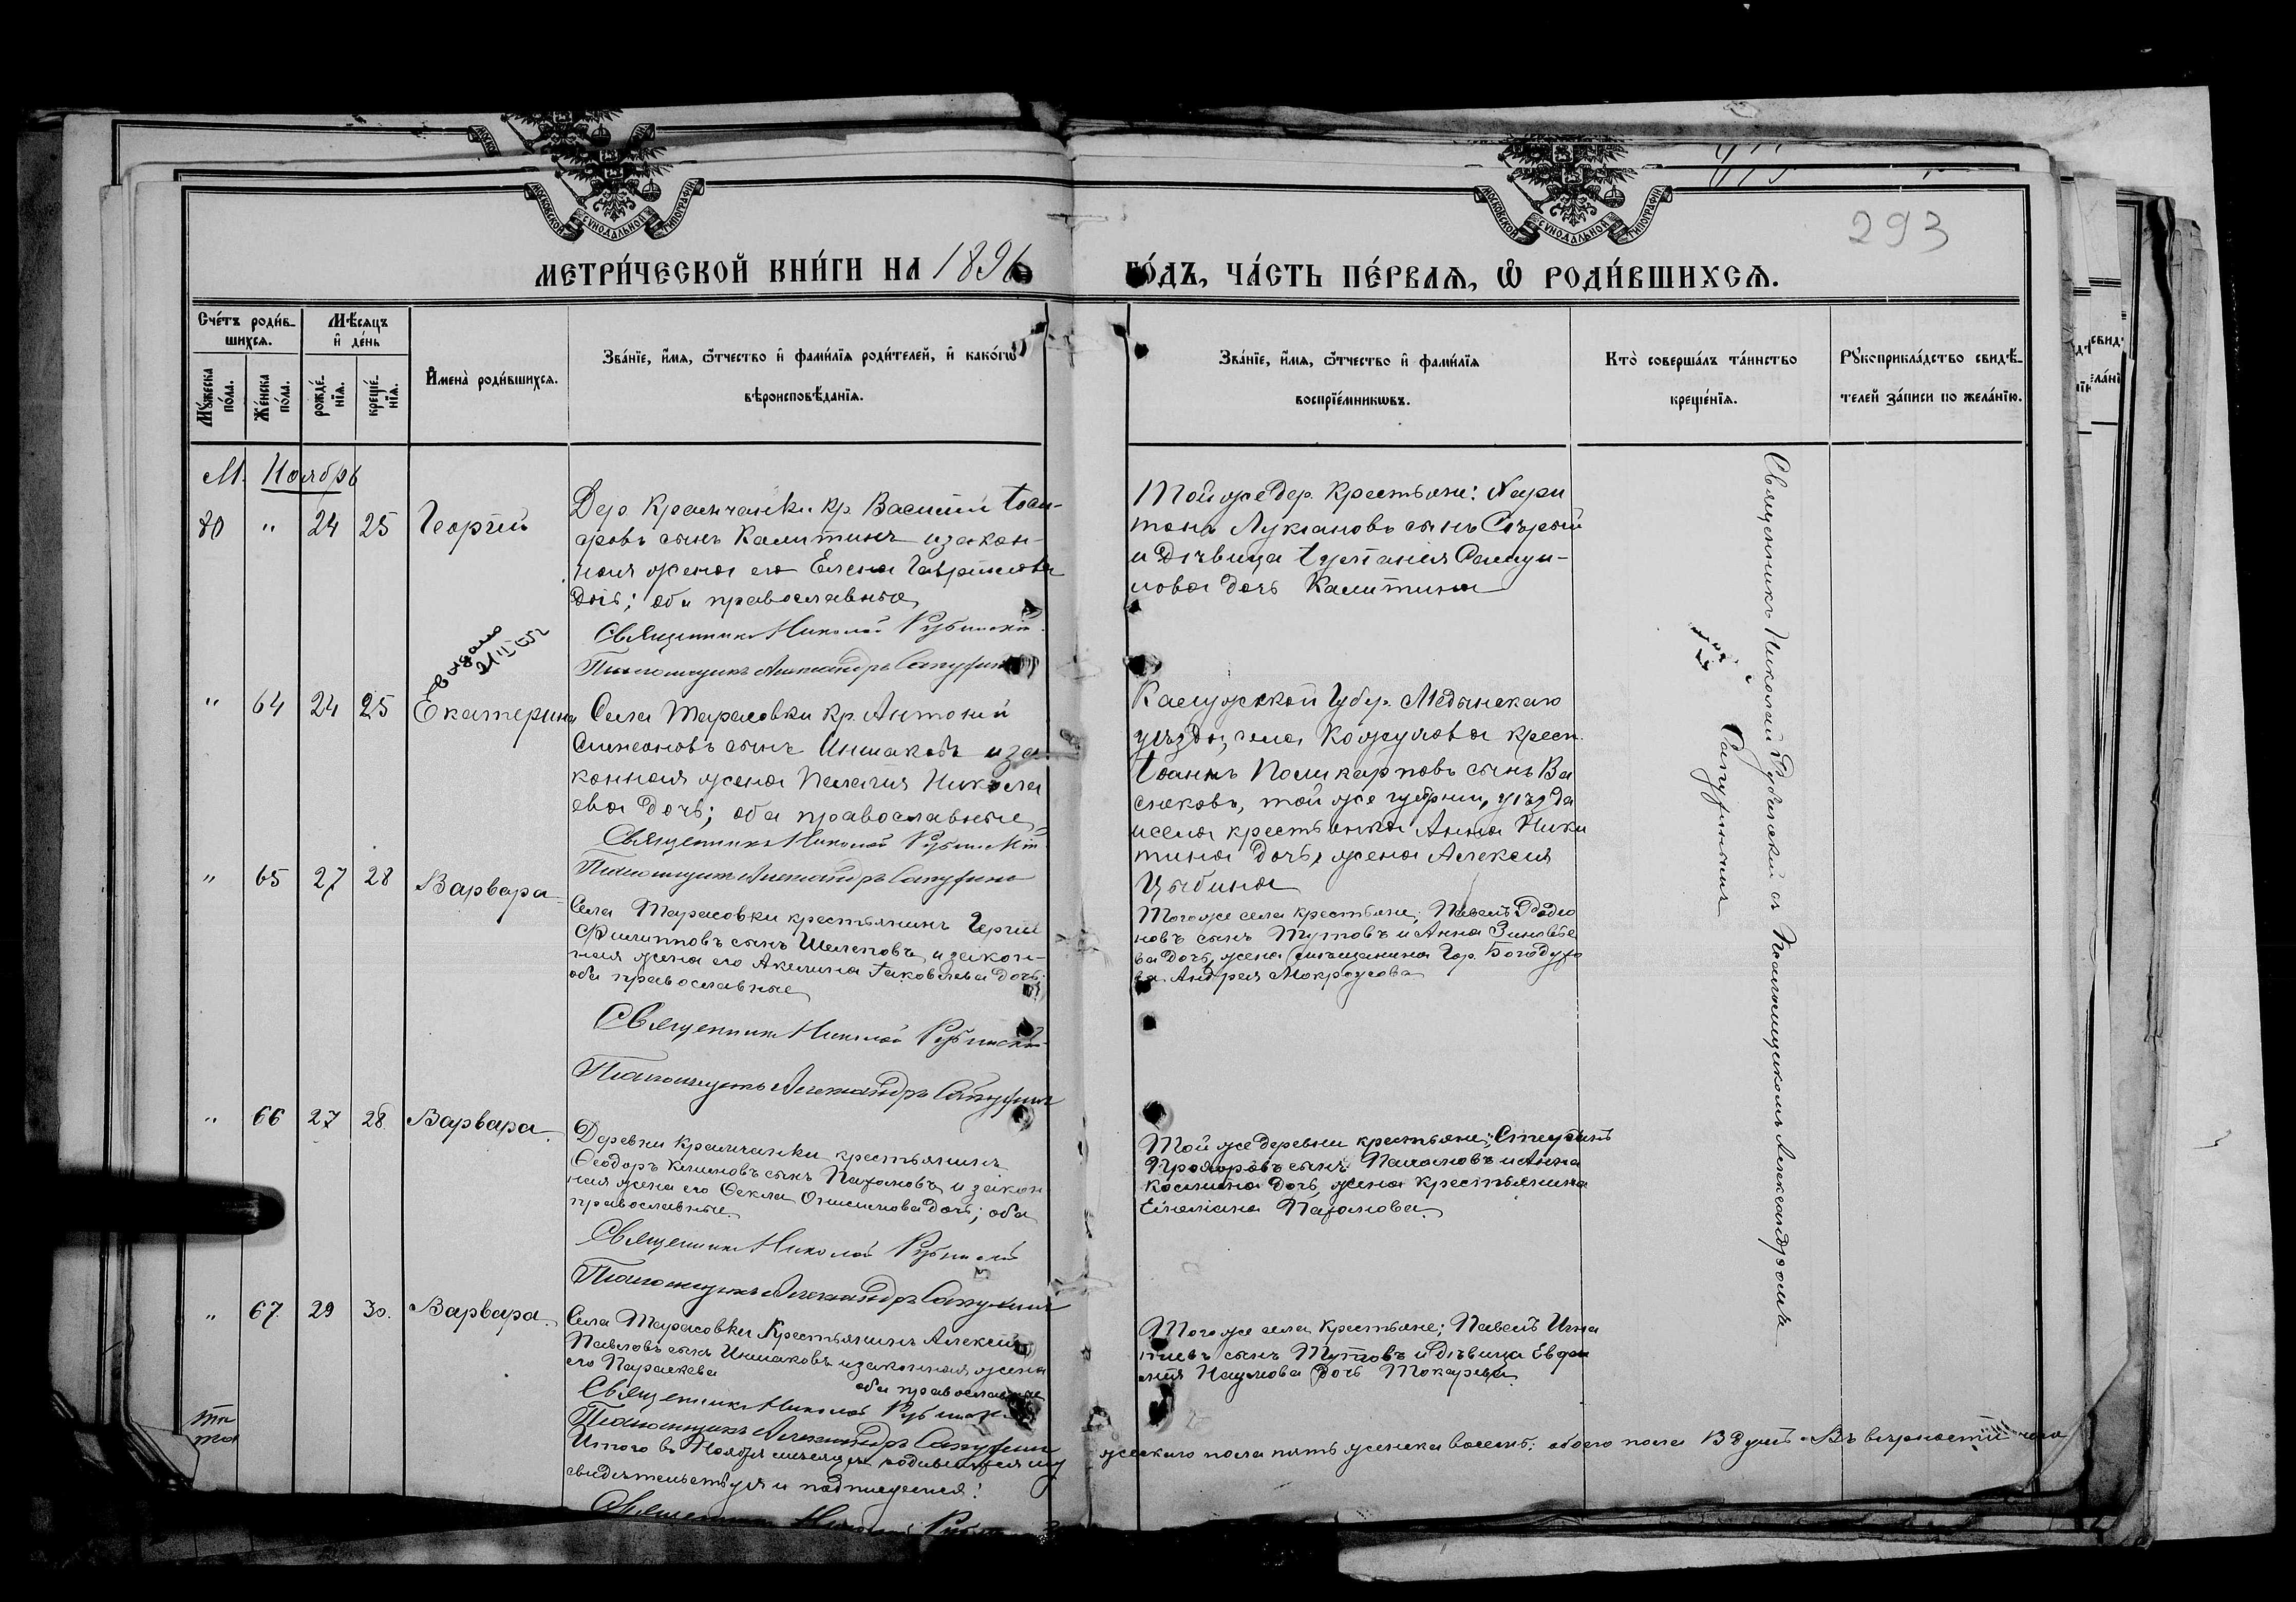 МОСКОВСКОЙ СѴНОДАЛЬНОЙ ТИПОГРАФІИ
МОСКОВСКОЙ СѴНОДАЛЬНОЙ ТИПОГРАФІИ
293
МЕТРИ́ЧЕСКОЙ КНИ́ГИ НА 1896
ГО́ДЪ, ЧА́СТЬ ПЕ́РВАЯ, Ѡ҆ РОДИ́ВШИХСЯ.
Сче́тъ роди́в-
шихся.
Мѣ́сяцъ
и҆ де́нь
Му́жеска по́ла.
Же́нска по́ла.
рожде́-нїя.
креще́-нїя.
И҆мена̀ роди́вшихся.
Зва́нїе, и҆́мя, ѻ҆́тчество и҆ фами́лїя роди́телей, и҆ како́гѡ
вѣроисповѣ́данїя.
Зва́нїе, и҆́мя, ѻ҆́тчество и҆ фами́лїя
воспрїе́мникѡвъ.
Кто̀ соверша́лъ та́инство
креще́нїя.
Рꙋкоприкла́дство свидѣ́-
телей за́писи по жела́нїю.
М. Ноябрь
80 " 24 25 Георгій
Дер. Крамчанки кр. Василій
ровъ сынъ Калитинъ и закон-
ная жена его Елена Гавриилова
дочь; оба православные
Священникъ Николай Рубинскій
Псаломщикъ Александръ Сапухинъ
Той же дер. крестьяне: Хари
тонъ Лукіановъ сынъ Сѣрый
и дѣвица Самуи-
лова дочь Калитина
Выдано
" 64 24 25 Екатерина
Села Тарасовки кр. Антоній
Симеоновъ сынъ Иншаковъ и за-
конная жена Пелагия Никола
ева дочь; оба православные
Священникъ Николай Рубинскій
Псаломщикъ Александръ Сапухинъ
Калужской губер. Медынскаго
уѣзда, села Кожухова крест.
Іоаннъ Поликарповъ сынъ Ва
сюковъ, той же губерніи, уѣзда
и села крестьянка Анна Ники
тина дочь, жена Алексія
Цыбина
" 65 27 28 Варвара
Села Тарасовки крестьянинъ
Филипповъ сынъ Шелеповъ и закон-
ная жена его Акилина Іаковлева дочь;
оба православные
Священникъ Николай Рубинскій
Псаломщикъ Александръ Сапухинъ
Того же села крестьяне; Павелъ Родіо
новъ сынъ Тутовъ и Анна Зиновье
ва дочь, жена мѣщанина гор. Богодухо
ва Андрея Мокроусова
" 66 27 28 Варвара
Деревни Крамчанки крестьянинъ
Ѳеодоръ сынъ Пахомовъ и закон
ная жена его Ѳекла Онисимова дочь; оба
православные.
Священникъ Николай Рубинскій
Псаломщикъ Александръ Сапухинъ
Той же деревни крестьяне;
Прохоровъ сынъ Пахомовъ и Анна
Космина дочь, жена крестьянина
Пахомова.
" 67. 29 30. Варвара.
Села Тарасовки крестьянинъ Алексій
Павловъ сынъ Иншаковъ и законная жена
его Параскева
оба православные
Священникъ Николай Рубинскій
Псаломщикъ Александръ Сапухинъ
Того же села крестьяне; Павелъ Игна
тиевъ сынъ Тутовъ и дѣвица Евфи
мія Наумова дочь Токарева.
Священникъ Николай Рубинскій съ Псаломщикомъ Александромъ
Сапухинымъ
Итого въ Ноябрѣ мѣсяцѣ родившихся му
жескаго пола пять женска восемь; обоего пола 13 душъ. Въ вѣрности чего
свидѣтельствуя и подписуемся:
Священникъ Николай